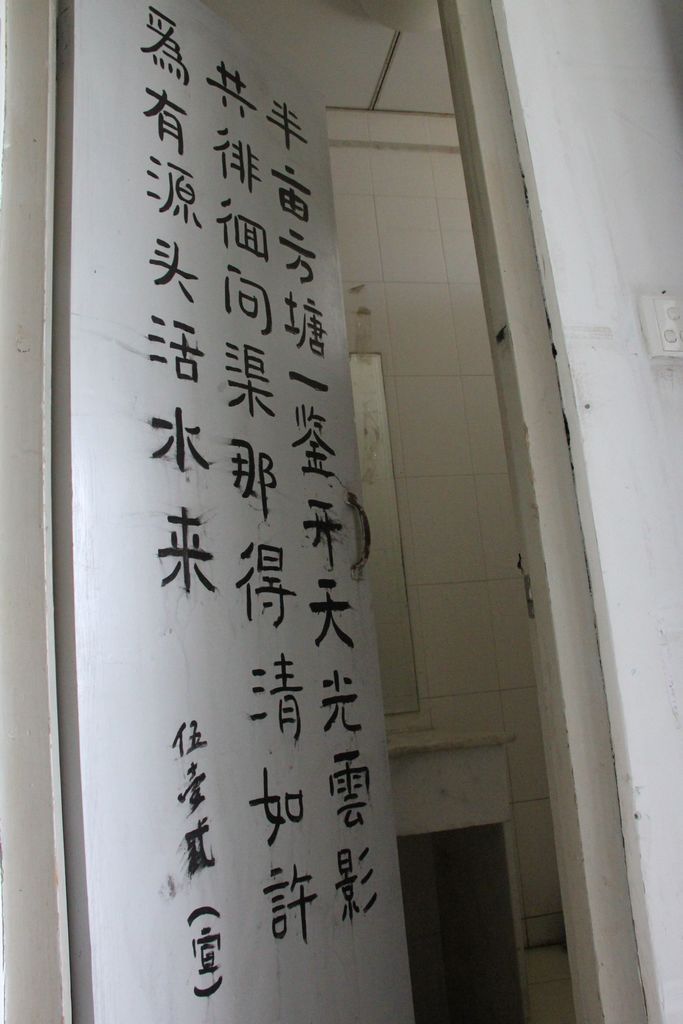 半亩方塘一鉴开天光雲影
共徘徊问渠那得清如許
爲有源头活水来
伍壹贰（宣）